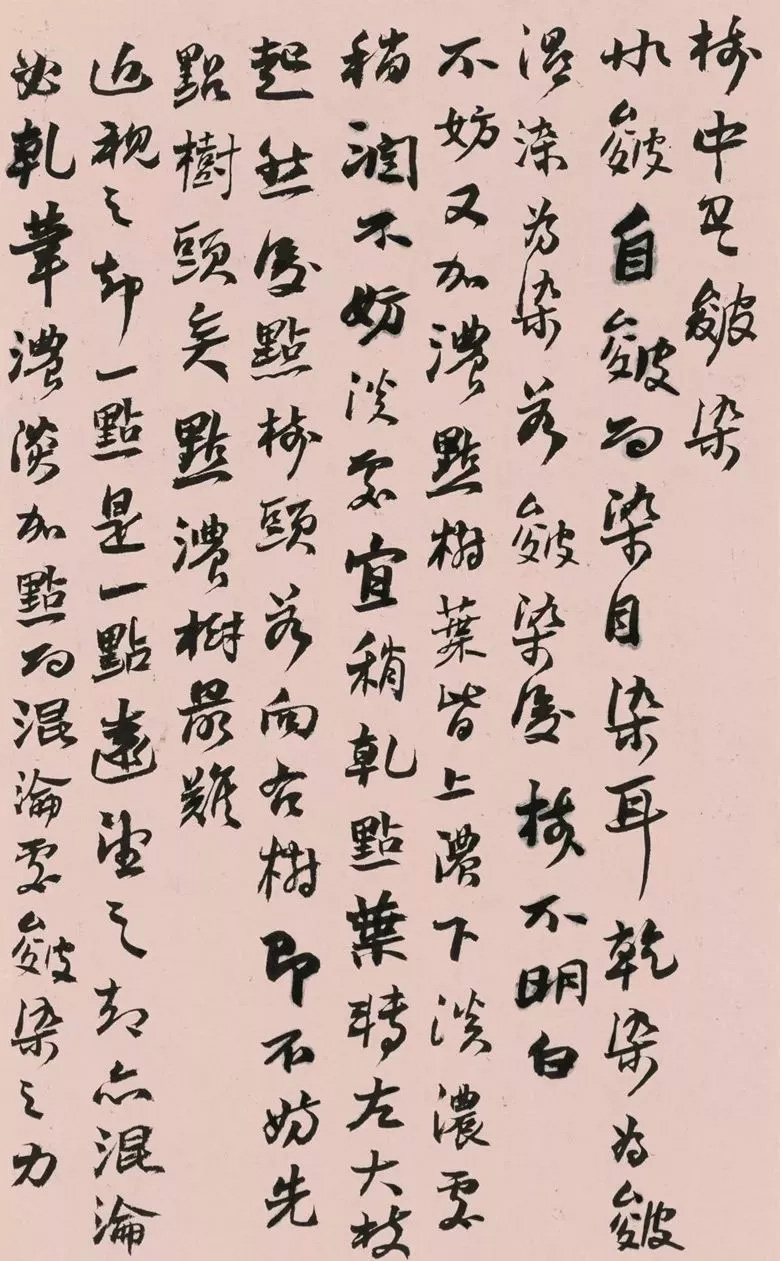 樹中皴染
非皴自皴而染自染耳乾染為皴
濕染為染若皴染後樹不明白
不妨又加濃點樹葉皆上濃下淡濃處
稍潤不妨淡處宜稍乾點葉轉左大枝
起然後點樹頭若向右樹即不妨先
點樹頭矣點濃樹最難
近視之却一點是一點遠望之却亦混淪
必乾筆濃淡加點而混淪處皴染之力